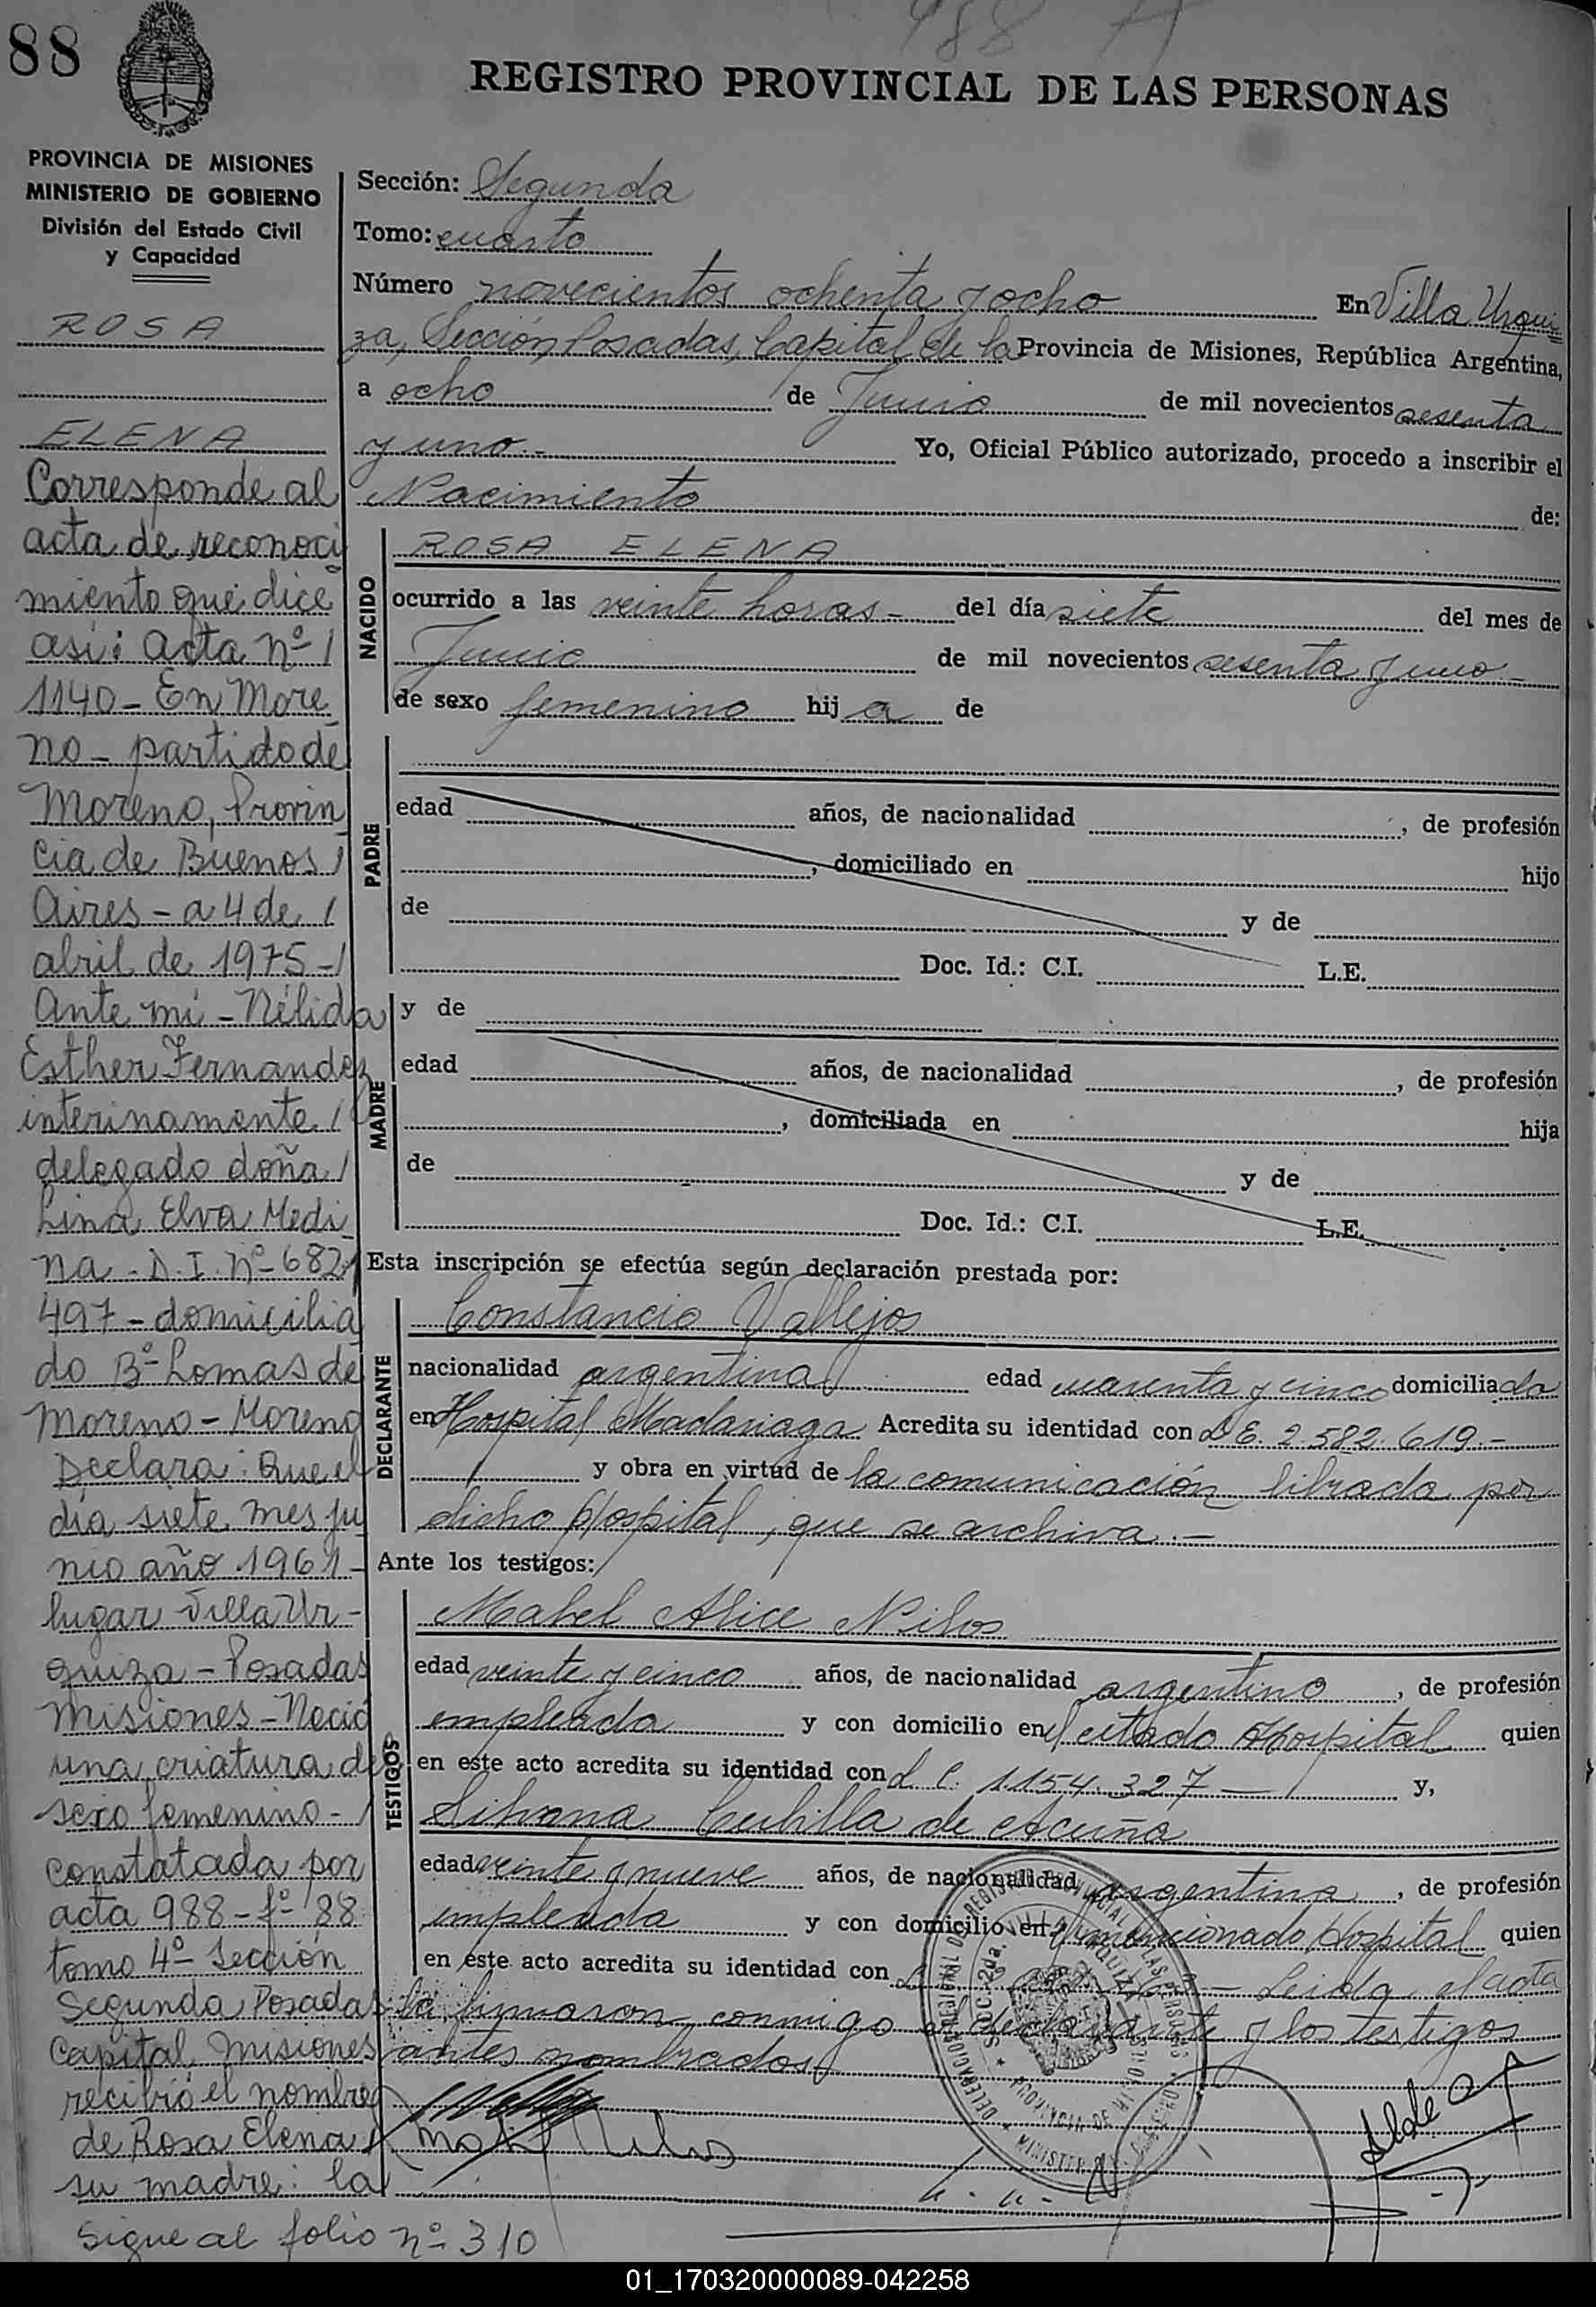 88
988 A
REGISTRO PROVINCIAL DE LAS PERSONAS
PROVINCIA DE MISIONES
MINISTERIO DE GOBIERNO
División del Estado Civil
y Capacidad
ROSA
ELENA
Corresponde al
acta de reconoci
miento que dice
así: acta nº /
1140 - En More
no - partido de
Moreno, Provin
cia de Buenos /
Aires - a 4 de /
abril de 1975 - /
Ante mí - Nélida
Esther Fernandez
interinamente /
delegado doña /
Lina Elva Medi
na - D.I. nº 682
497 - domicilia
do Bº Lomas de
Moreno - Moreno
Declara: Que el
día siete mes ju
nio año 1961 -
lugar Villa Ur -
quiza - Posadas
Misiones - Nació
una criatura de
sexo femenino - /
constatada por
acta 988 - fº 88
tomo 4º Sección
Segunda Posadas
Capital Misiones
recibió el nombre
de Rosa Elena
su madre: la
sigue al folio nº 310
Sección: Segunda
Tomo: cuarto
Número novecientos ochenta y ocho En Villa Urqui
za, Sección Posadas, Capital de la Provincia de Misiones, República Argentina,
a ocho de Junio de mil novecientos sesenta
y uno.- Yo, Oficial Público autorizado, procedo a inscribir el
Nacimiento de:
NACIDO
ROSA ELENA
ocurrido a las veinte horas - del día siete del mes de
Junio de mil novecientos sesenta y uno -
de sexo femenino hij a de
PADRE
edad años, de nacionalidad , de profesión
, domiciliado en hijo
de y de
Doc. Id.: C.I. L.E.
MADRE
y de
edad años, de nacionalidad , de profesión
, domiciliada en hija
de y de
Doc. Id.: C.I. L.E.
Esta inscripción se efectúa según declaración prestada por:
DECLARANTE
Constancio Vallejos
nacionalidad argentina edad cuarenta y cinco domiciliado
en Hospital Madariaga Acredita su identidad con L.E. 2.582.619.-
y obra en virtud de la comunicación librada por
dicho Hospital, que se archiva.-
Ante los testigos:
TESTIGOS
Mabel Alice
edad veinte y cinco años, de nacionalidad argentino, de profesión
empleada y con domicilio en el citado Hospital quien
en este acto acredita su identidad con L.C. 1.154.327 — y,
Silvana de Acuña
edad veinte y nueve años, de nacionalidad argentina, de profesión
empleada y con domicilio en el mencionado Hospital quien
en este acto acredita su identidad con - Leida el acta
la firmaron conmigo el declarante y los testigos
antes nombrados
01_170320000089-042258